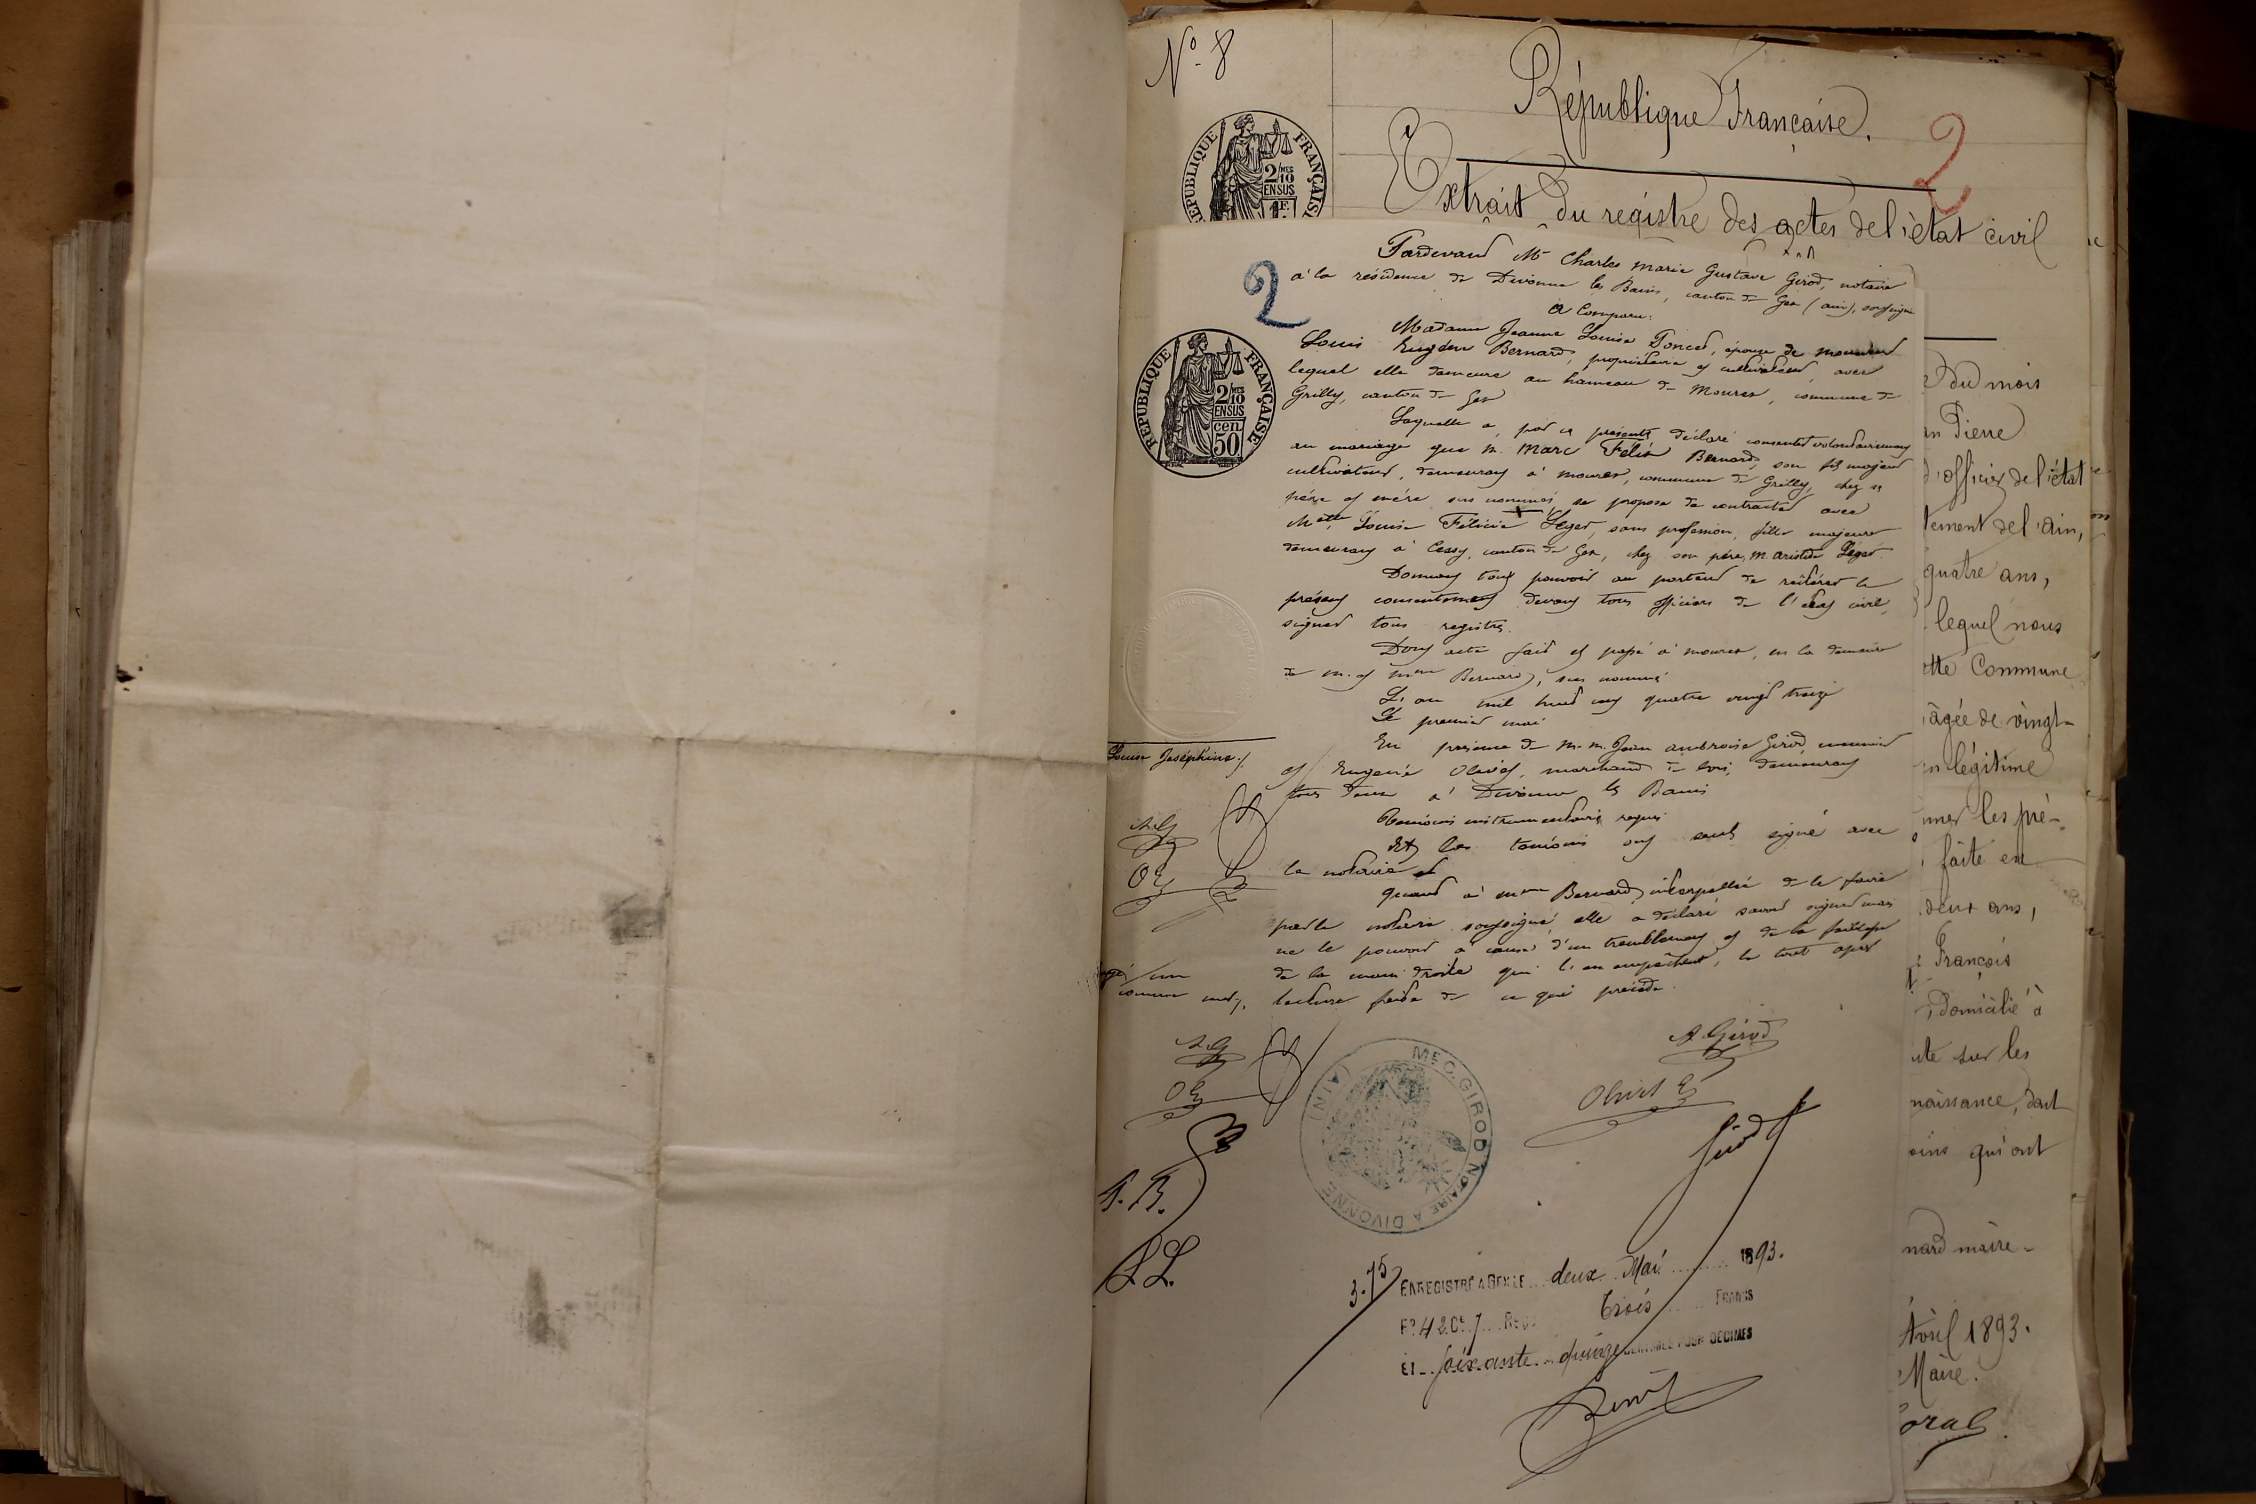 Nº 8
République Française.
2
Extrait du registre des actes de l'état civil
REPUBLIQUE FRANÇAISE
2/10 MES
EN SUS
1F.
Pardevant Me Charles Marie Gustave Girod, notaire
à la résidence de Divonne les Bains, canton de Gex (ain), soussigné
2
A Comparu:
Madame Jeanne Louise Poncet, épouse de monsieur
Louis Eugène Bernard, propriétaire et cultivateur, avec
lequel elle demeure au hameau de Mourex, commune de
Grilly, canton de Gex
REPUBLIQUE FRANÇAISE
2/10 MES
EN SUS
cen. 50
Laquelle a, par ces présentes déclaré consentir volontairement
au mariage que M. Marc Félix Bernard, son fils majeur
cultivateur, demeurant à mourex, commune de Grilly, chez ses
père et mère sus nommés, se propose de contracter avec
Melle Louise Félicie Léger, sans profession, fille majeure
demeurant à Cessy, canton de Gex, chez son père, M. Aristide Léger.
Donnant tout pouvoir au porteur de réitérer le
présent consentement devant tous officiers de l'état civil,
signer tous registres.
Dont acte fait et passé à mourex, en la demeure
de M. et Mme Bernard, sus nommés
L'an mil huit cent quatre vingt treize
Le premier mai
En présence de M.M. Jean Ambroise Girod,
Louise Joséphine
et Eugène Olivet, marchand de bois, demeurant
tous deux à Divonne les Bains
Témoins instrumentaires requis
Et les témoins ont seuls signé avec
le notaire
Quant à Mme Bernard, interpellée de le faire
par le notaire soussigné, elle a déclaré savoir signer mais
ne le pouvoir à cause d'un tremblement et de la faiblesse
de la main droite qui l'en empêchent, le tout après
lecture faite de ce qui précède.
A. Girod
Olivet E
Girod
ME C. GIROD NOTAIRE A DIVONNE (AIN)
L.L.
3.75
ENREGISTRÉ A GEX LE deux Mai 1893.
Fº 42 Ce 7 Reçu Trois FRANCS
ET soixante quinze CENTIMES POUR DÉCIMES
du mois
Pierre
d'officier de l'état
tement de l'Ain,
quatre ans,
lequel nous
Commune
âgée de vingt-
légitime
les pré-
faite en
deux ans,
François
domicilié à
sur les
naissance, dont
qui ont
maire
Avril 1893.
Maire.